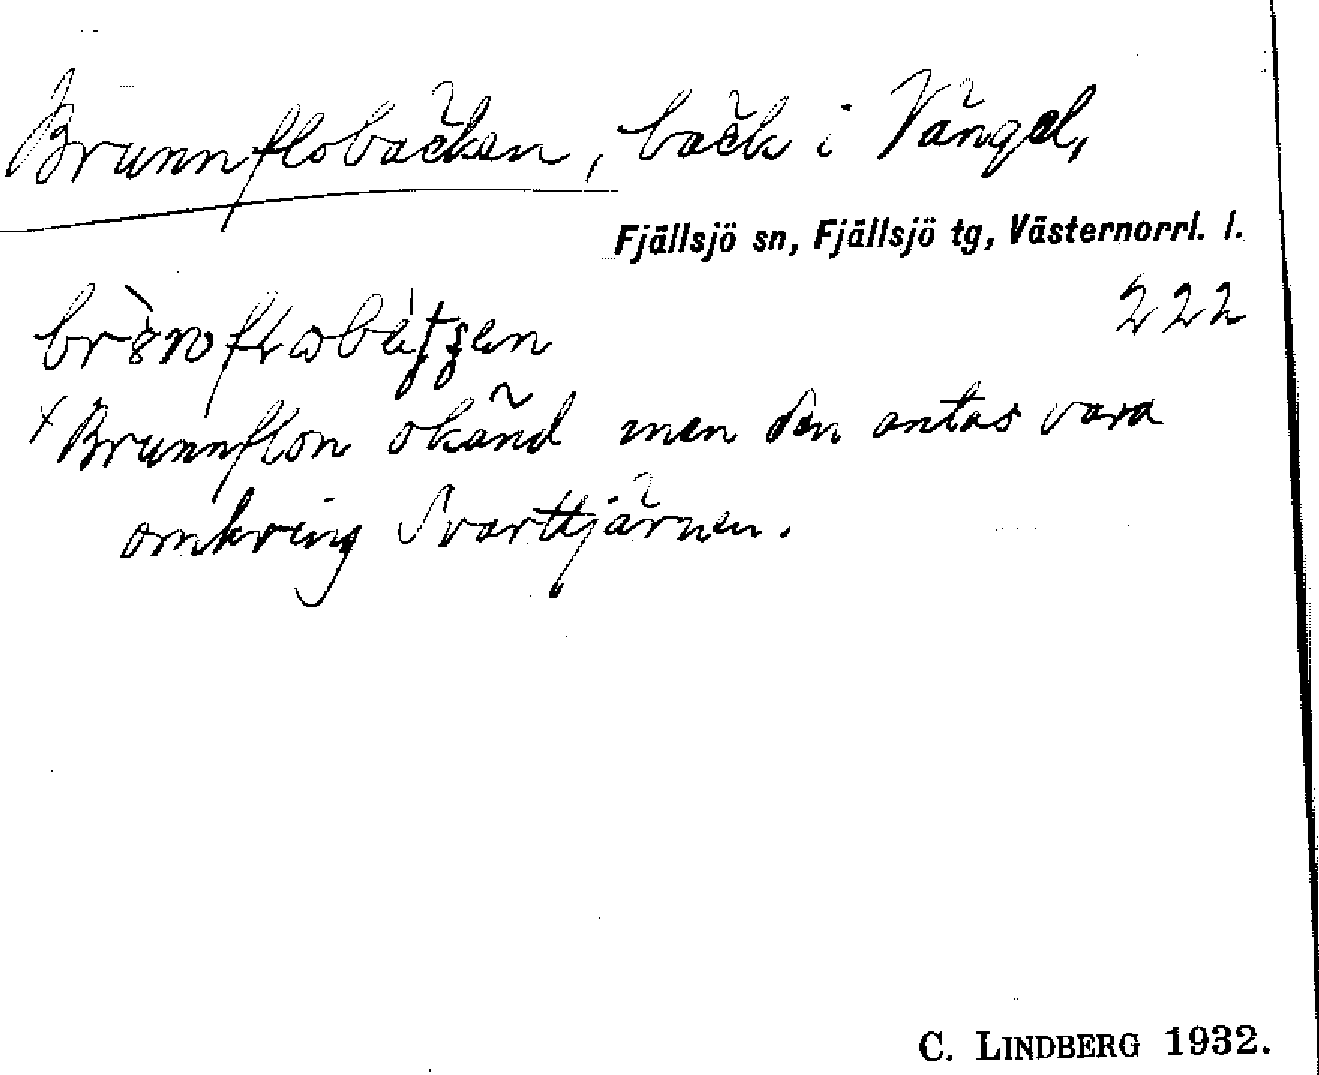 Brunnflobäcken, bäck i Vängel,
Fjällsjö sn, Fjällsjö tg, Västernorrl. l.
222
x Brunnflon okänd men den antas vara
omkring Svarttjärnen.
C. LINDBERG 1932.